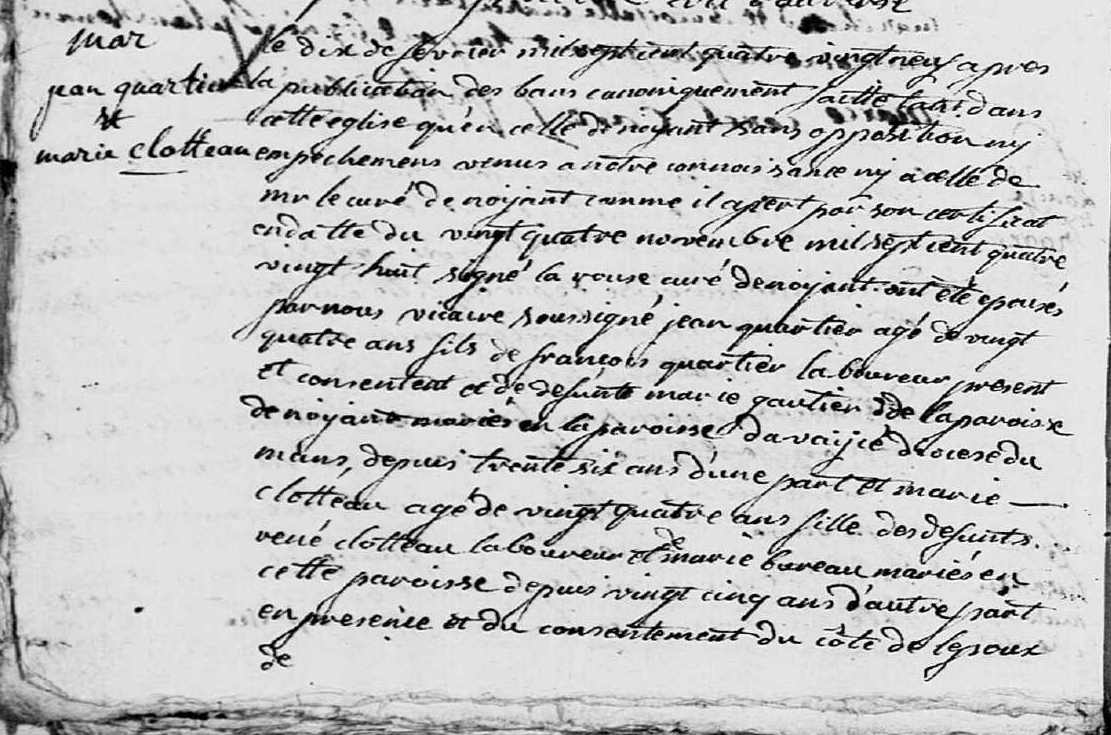 mar
jean quartier
et
marie clotteau
le dix de fevrier mil sept cent quatre vingt neuf apres
la publication des bans canoniquement faitte tant dans
cette eglise qu'en celle de noyant sans opposition ny
empechemens venus a notre connoissance ny a celle de
mr le curé de noyant comme il apert par son certificat
en datte du vingt quatre novembre mil sept cent quatre
vingt huit signé la rouse curé de noyant ont été epousés
par nous vicaire soussigné jean quartier agé de vingt
quatre ans fils de françois quartier laboureur present
et consentent et de defunte marie gautier de la paroisse
de noyant mariés en la paroisse diocese du
mans, depuis trente six ans d'une part et marie
clotteau agé de vingt quatre ans fille des defunts
rené clotteau laboureur et de marie bureau mariés en
cette paroisse depuis vingt cinq ans d'autre part
en presence et du consentement du côté de lepoux
de